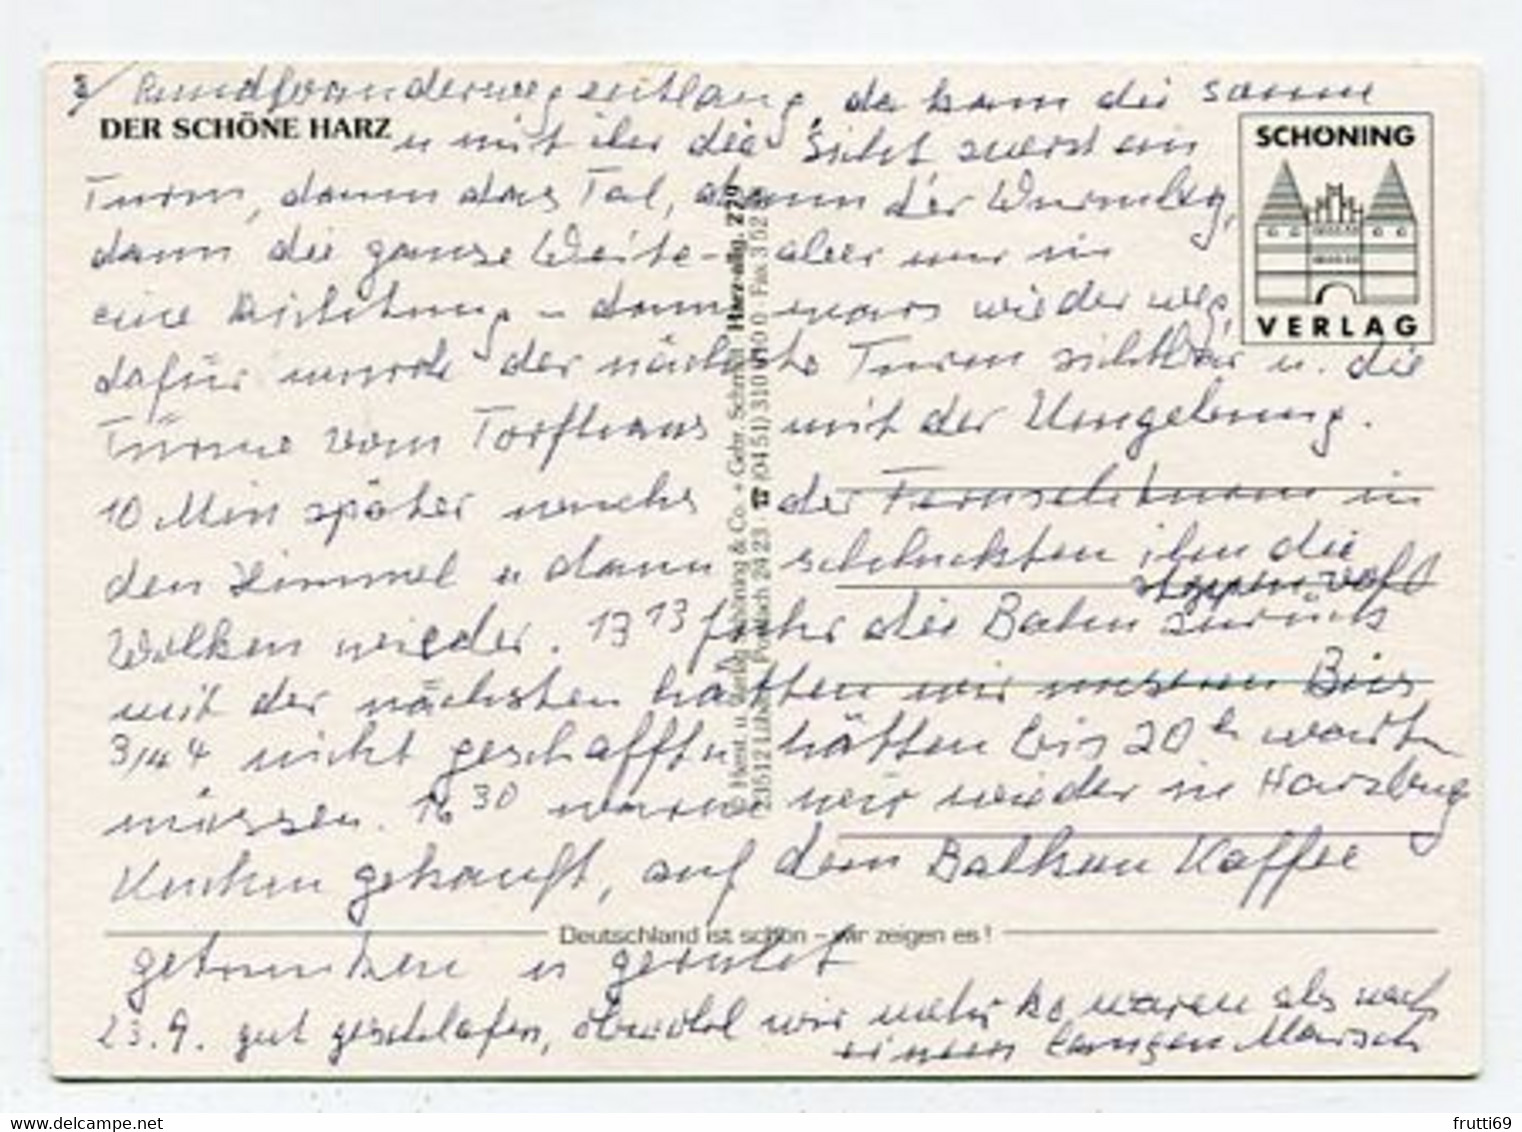 3/ Rundwanderweg entlang, da kam die Sonne
DER SCHÖNE HARZ
u mit ihr die Sicht zuerst ein
Turm, dann das Tal, dann der Wurmberg,
dann die ganze Weite - aber nur in
eine Richtung - dann wars wieder weg,
dafür wurde der nächste Turm sichtbar u. die
Türme vom Torfhaus mit der Umgebung.
10 Min später wuchs der Fernsehturm in
den Himmel u dann schluckten ihn die
Wolken wieder. 13 13 fuhr die Bahn zurück
mit der nächsten hätten wir unseren Bus
3/4 4 nicht geschafft u hätten bis 20 h warten
müssen. 16 30 waren wir wieder in Harzburg
Kuchen gekauft, auf dem Balkon Kaffee
getrunken u geruht
23.9. gut geschlafen, obwohl wir mehr ko waren als nach
einem langen Marsch
SCHÖNING
VERLAG
Deutschland ist schön – wir zeigen es!
Harz-allg. Z 79
Herst. u. Verlag Schöning & Co. + Gebr. Schmidt
23512 Lübeck Postfach 24 23 · ☎ (04 51) 310 310 0 · Fax 3 52
frutti69
www.delcampe.net